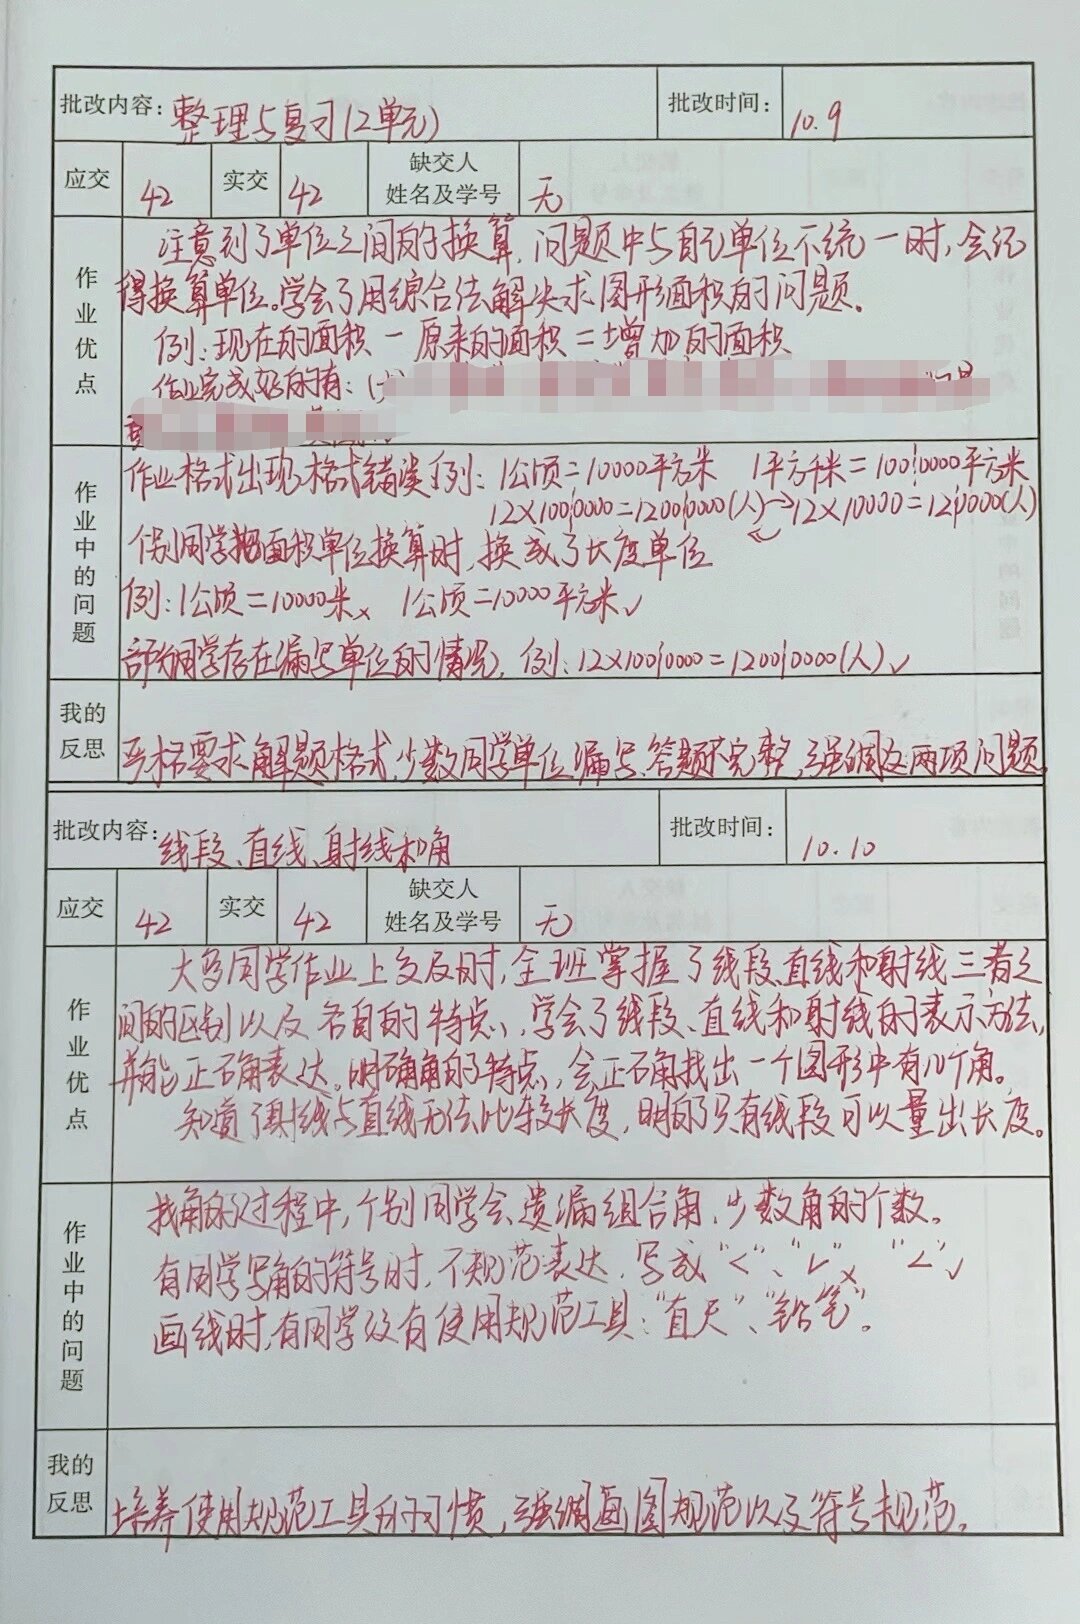 批改内容: 整理与复习(2单元) 批改时间: 10.9
应交 42 实交 42 缺交人姓名及学号 无
作业优点
注意到了单位之间的换算,问题中与自己单位不统一时,会记
得换算单位。学会了用综合法解决求图形面积的问题。
例:现在的面积-原来的面积=增加的面积
作业完成好的有:
作业中的问题
作业格式出现格式错误 例:1公顷=10000平方米 1平方千米=100|0000平方米
12×100|0000=1200|0000(人)→12×10000=12|0000(人)
个别同学把面积单位换算时,换成了长度单位
例:1公顷=10000米× 1公顷=10000平方米√
部分同学存在漏写单位的情况,例:12×100|0000=1200|0000(人)√
我的反思
严格要求解题格式,少数同学单位漏写、答题不完整,强调这两项问题。
批改内容: 线段、直线、射线和角 批改时间: 10.10
应交 42 实交 42 缺交人姓名及学号 无
作业优点
大多同学作业上交及时,全班掌握了线段、直线和射线三者之
间的区别以及各自的特点,学会了线段、直线和射线的表示方法,
并能正确表达。明确角的特点,会正确找出一个图形中有几个角。
知道了射线与直线无法比较长度,明白了只有线段可以量出长度。
作业中的问题
找角的过程中,个别同学会遗漏组合角,少数角的个数。
有同学写角的符号时,不规范表达,写成"<"、"∠"× "∠"√
画线时,有同学没有使用规范工具:"直尺"、"铅笔"。
我的反思
培养使用规范工具的习惯,强调画图规范以及符号规范。